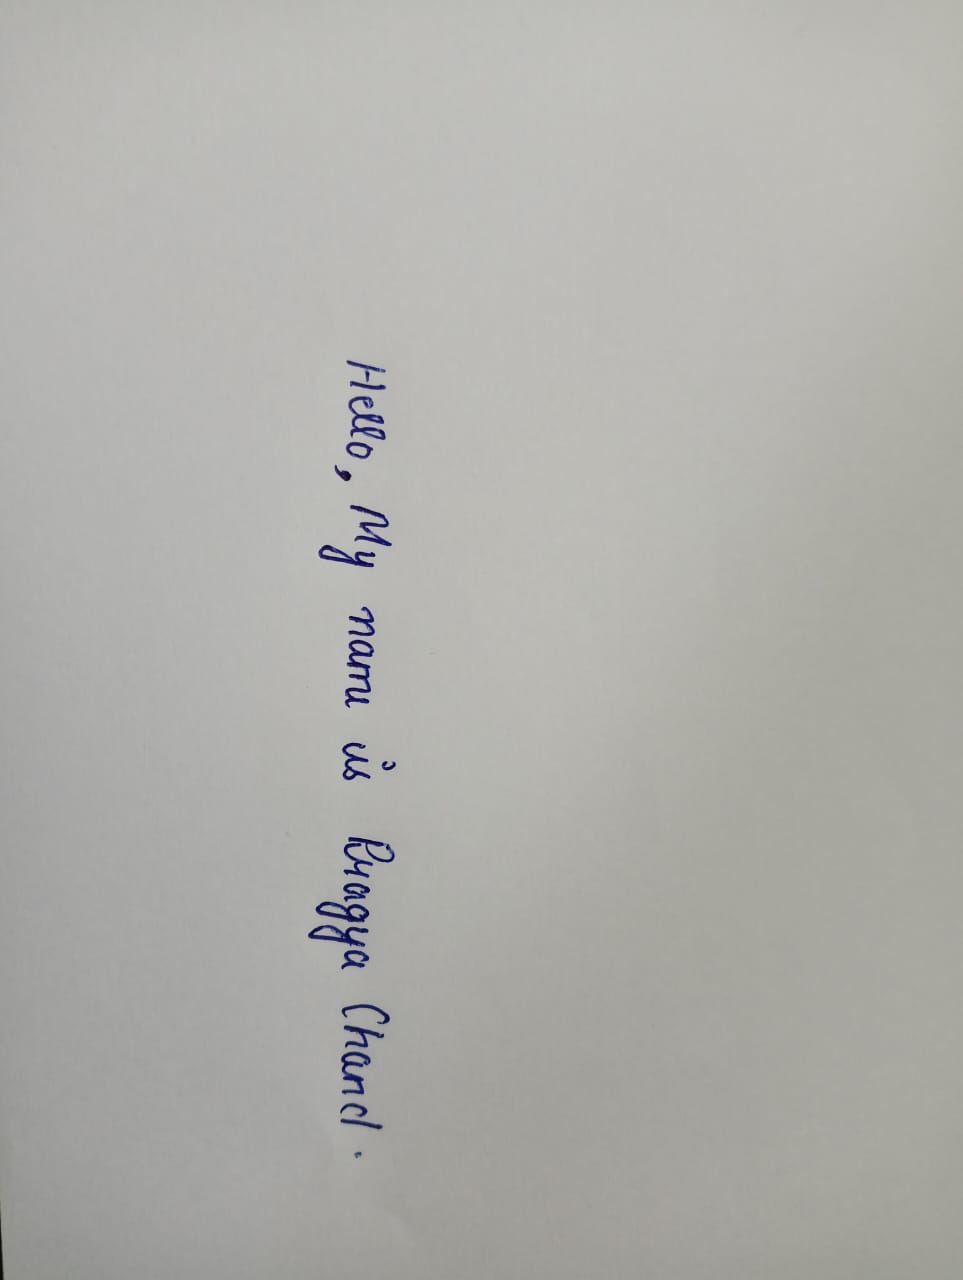 Hello, My name is Pragya Chand.